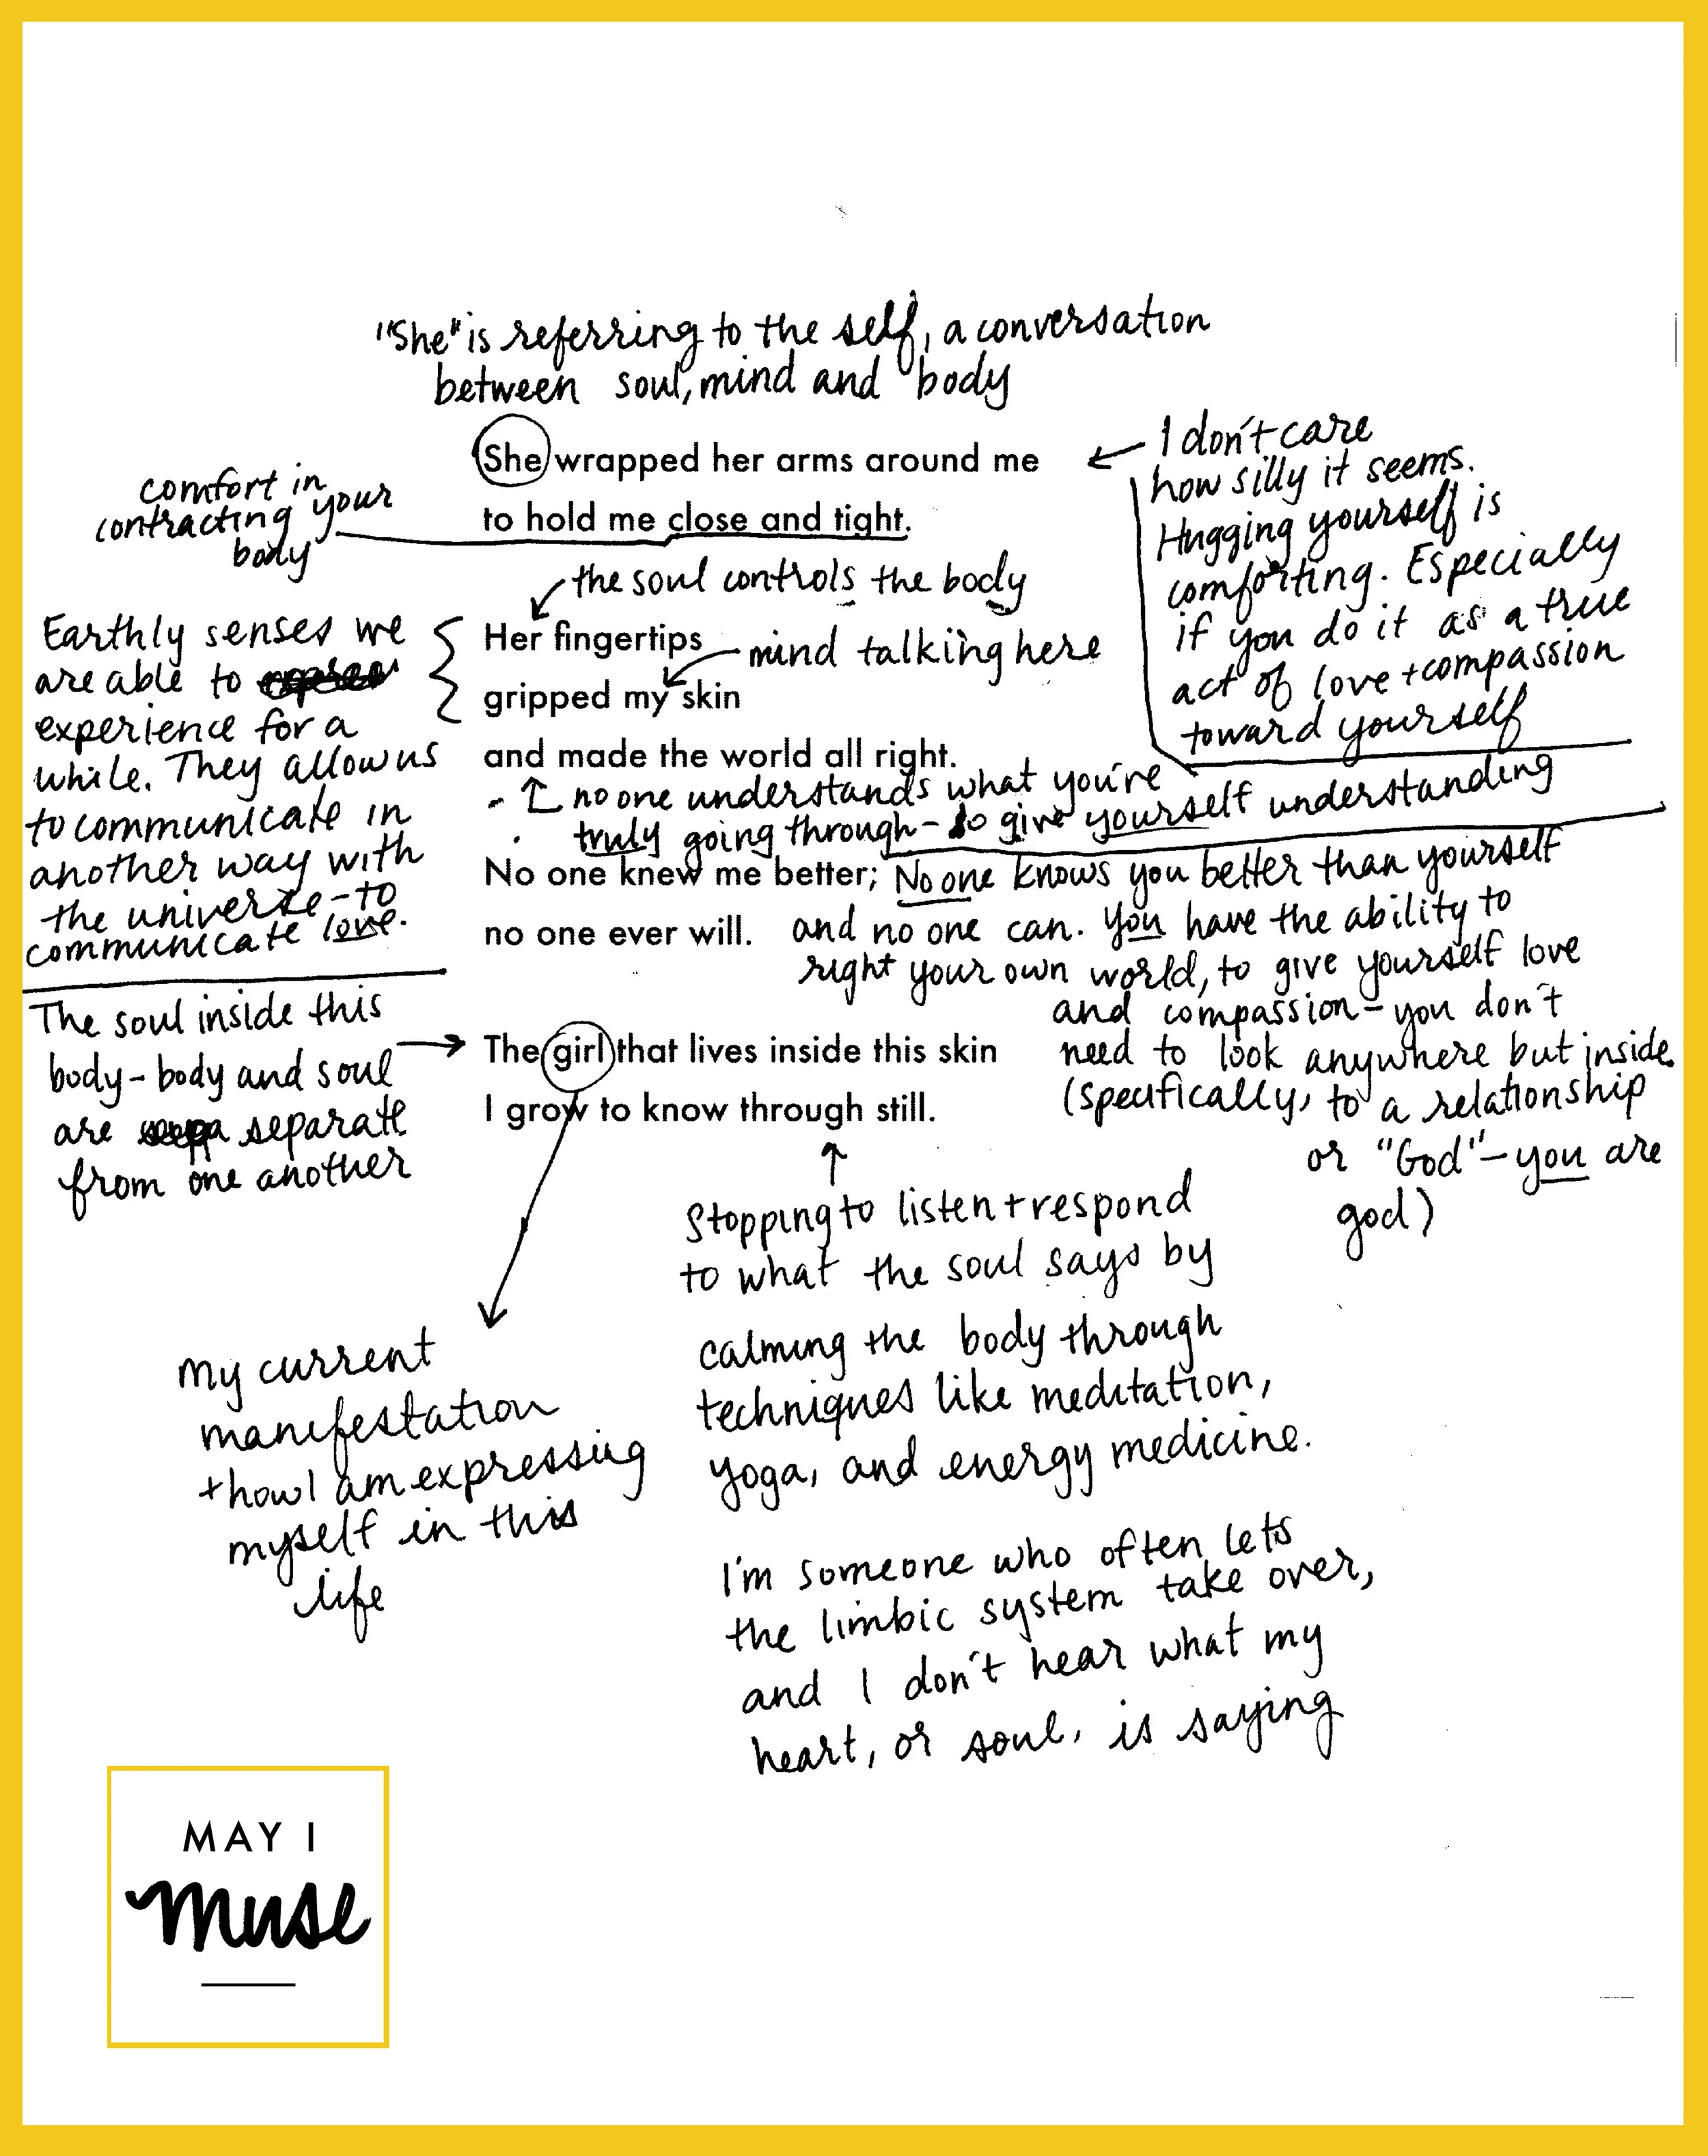 "She" is referring to the self, a conversation
between soul, mind and body
She wrapped her arms around me
to hold me close and tight.
comfort in
contracting your
body
I don't care
how silly it seems.
Hugging yourself is
comforting. Especially
if you do it as a true
act of love + compassion
toward yourself
the soul controls the body
Her fingertips
mind talking here
gripped my skin
and made the world all right.
Earthly senses we
are able to
experience for a
while. They allow us
to communicate in
another way with
the universe - to
communicate love.
no one understands what you're
truly going through - so give yourself understanding
No one knew me better;
no one ever will.
No one knows you better than yourself
and no one can. You have the ability to
right your own world, to give yourself love
and compassion - you don't
need to look anywhere but inside
(specifically, to a relationship
or "God" - you are
god)
The soul inside this
body - body and soul
are separate
from one another
The girl that lives inside this skin
I grow to know through still.
My current
manifestation
+ how I am expressing
myself in this
life
Stopping to listen + respond
to what the soul says by
calming the body through
techniques like meditation,
yoga, and energy medicine.
I'm someone who often lets
the limbic system take over,
and I don't hear what my
heart, or soul, is saying
MAY I
muse